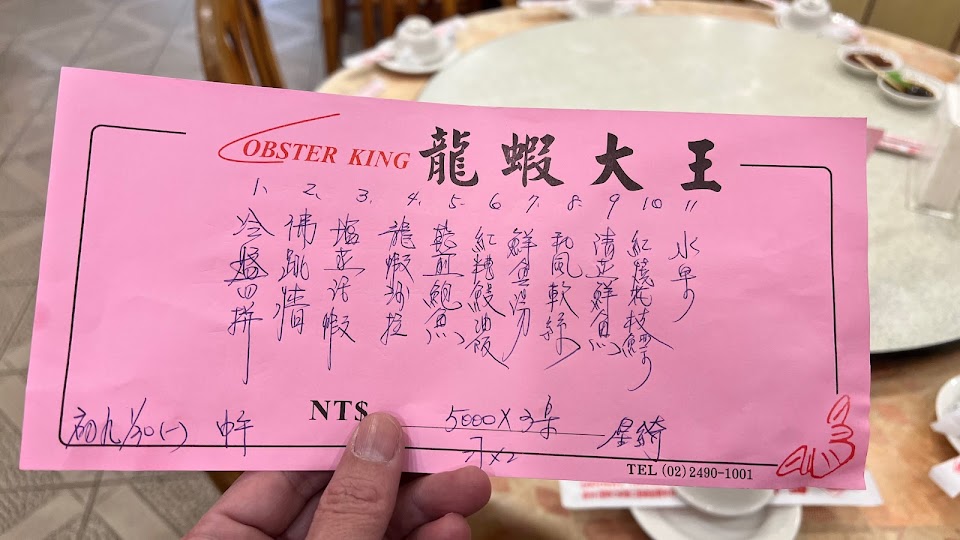 LOBSTER KING 龍蝦大王
1. 2. 3. 4. 5. 6. 7. 8. 9 10 11
冷盤四拼
佛跳牆
塩蒸活蝦
龍蝦沙拉
乾煎鮑魚
紅糟鰻油飯
鮮魚湯
和風軟絲
清蒸鮮魚
紅燒花枝
水果
初九 1/30(一) 中午
NT$ 5000 X 3桌
TEL (02) 2490-1001